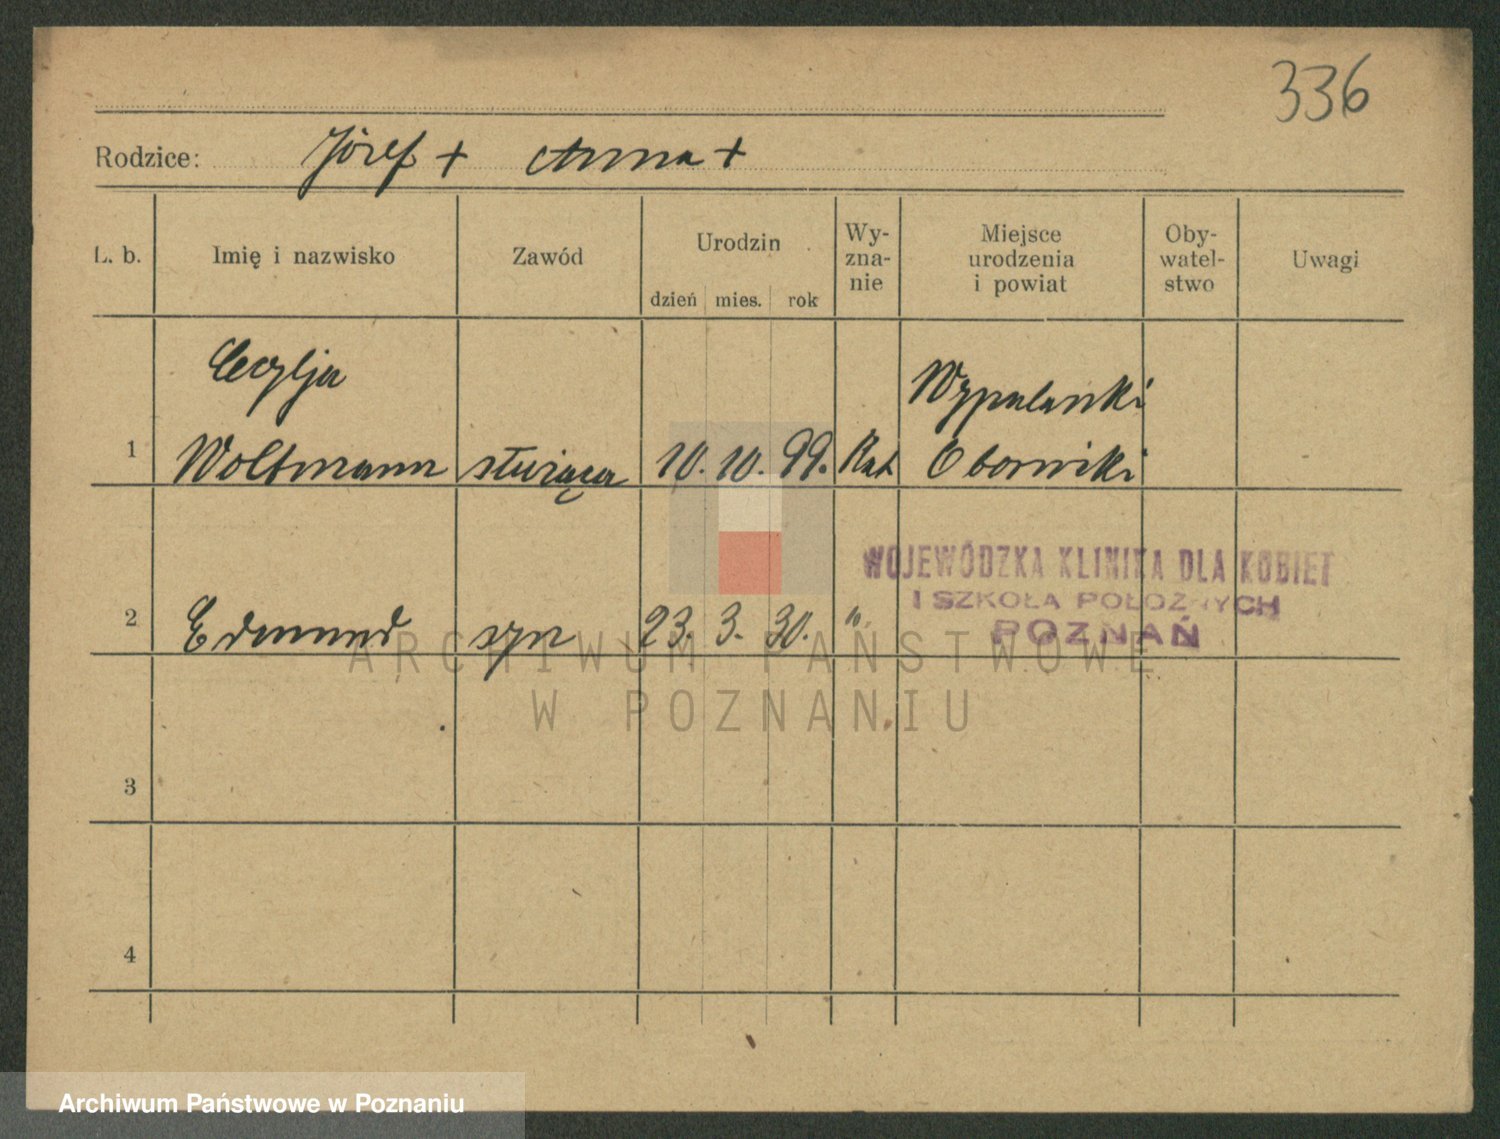 336
Rodzice: Józef + Anna +
L. b. Imię i nazwisko Zawód Urodzin dzień mies. rok Wy-zna-nie Miejsce urodzenia i powiat Oby-watel-stwo Uwagi
Cecylja Wypalanki
1 Woltmann służąca 10. 10. 99. Kat. Oborniki
WOJEWÓDZKA KLINIKA DLA KOBIET
I SZKOŁA POŁOŻNYCH
POZNAŃ
2 Edmund syn 23. 3. 30. "
ARCHIWUM PAŃSTWOWE
W POZNANIU
3
4
Archiwum Państwowe w Poznaniu